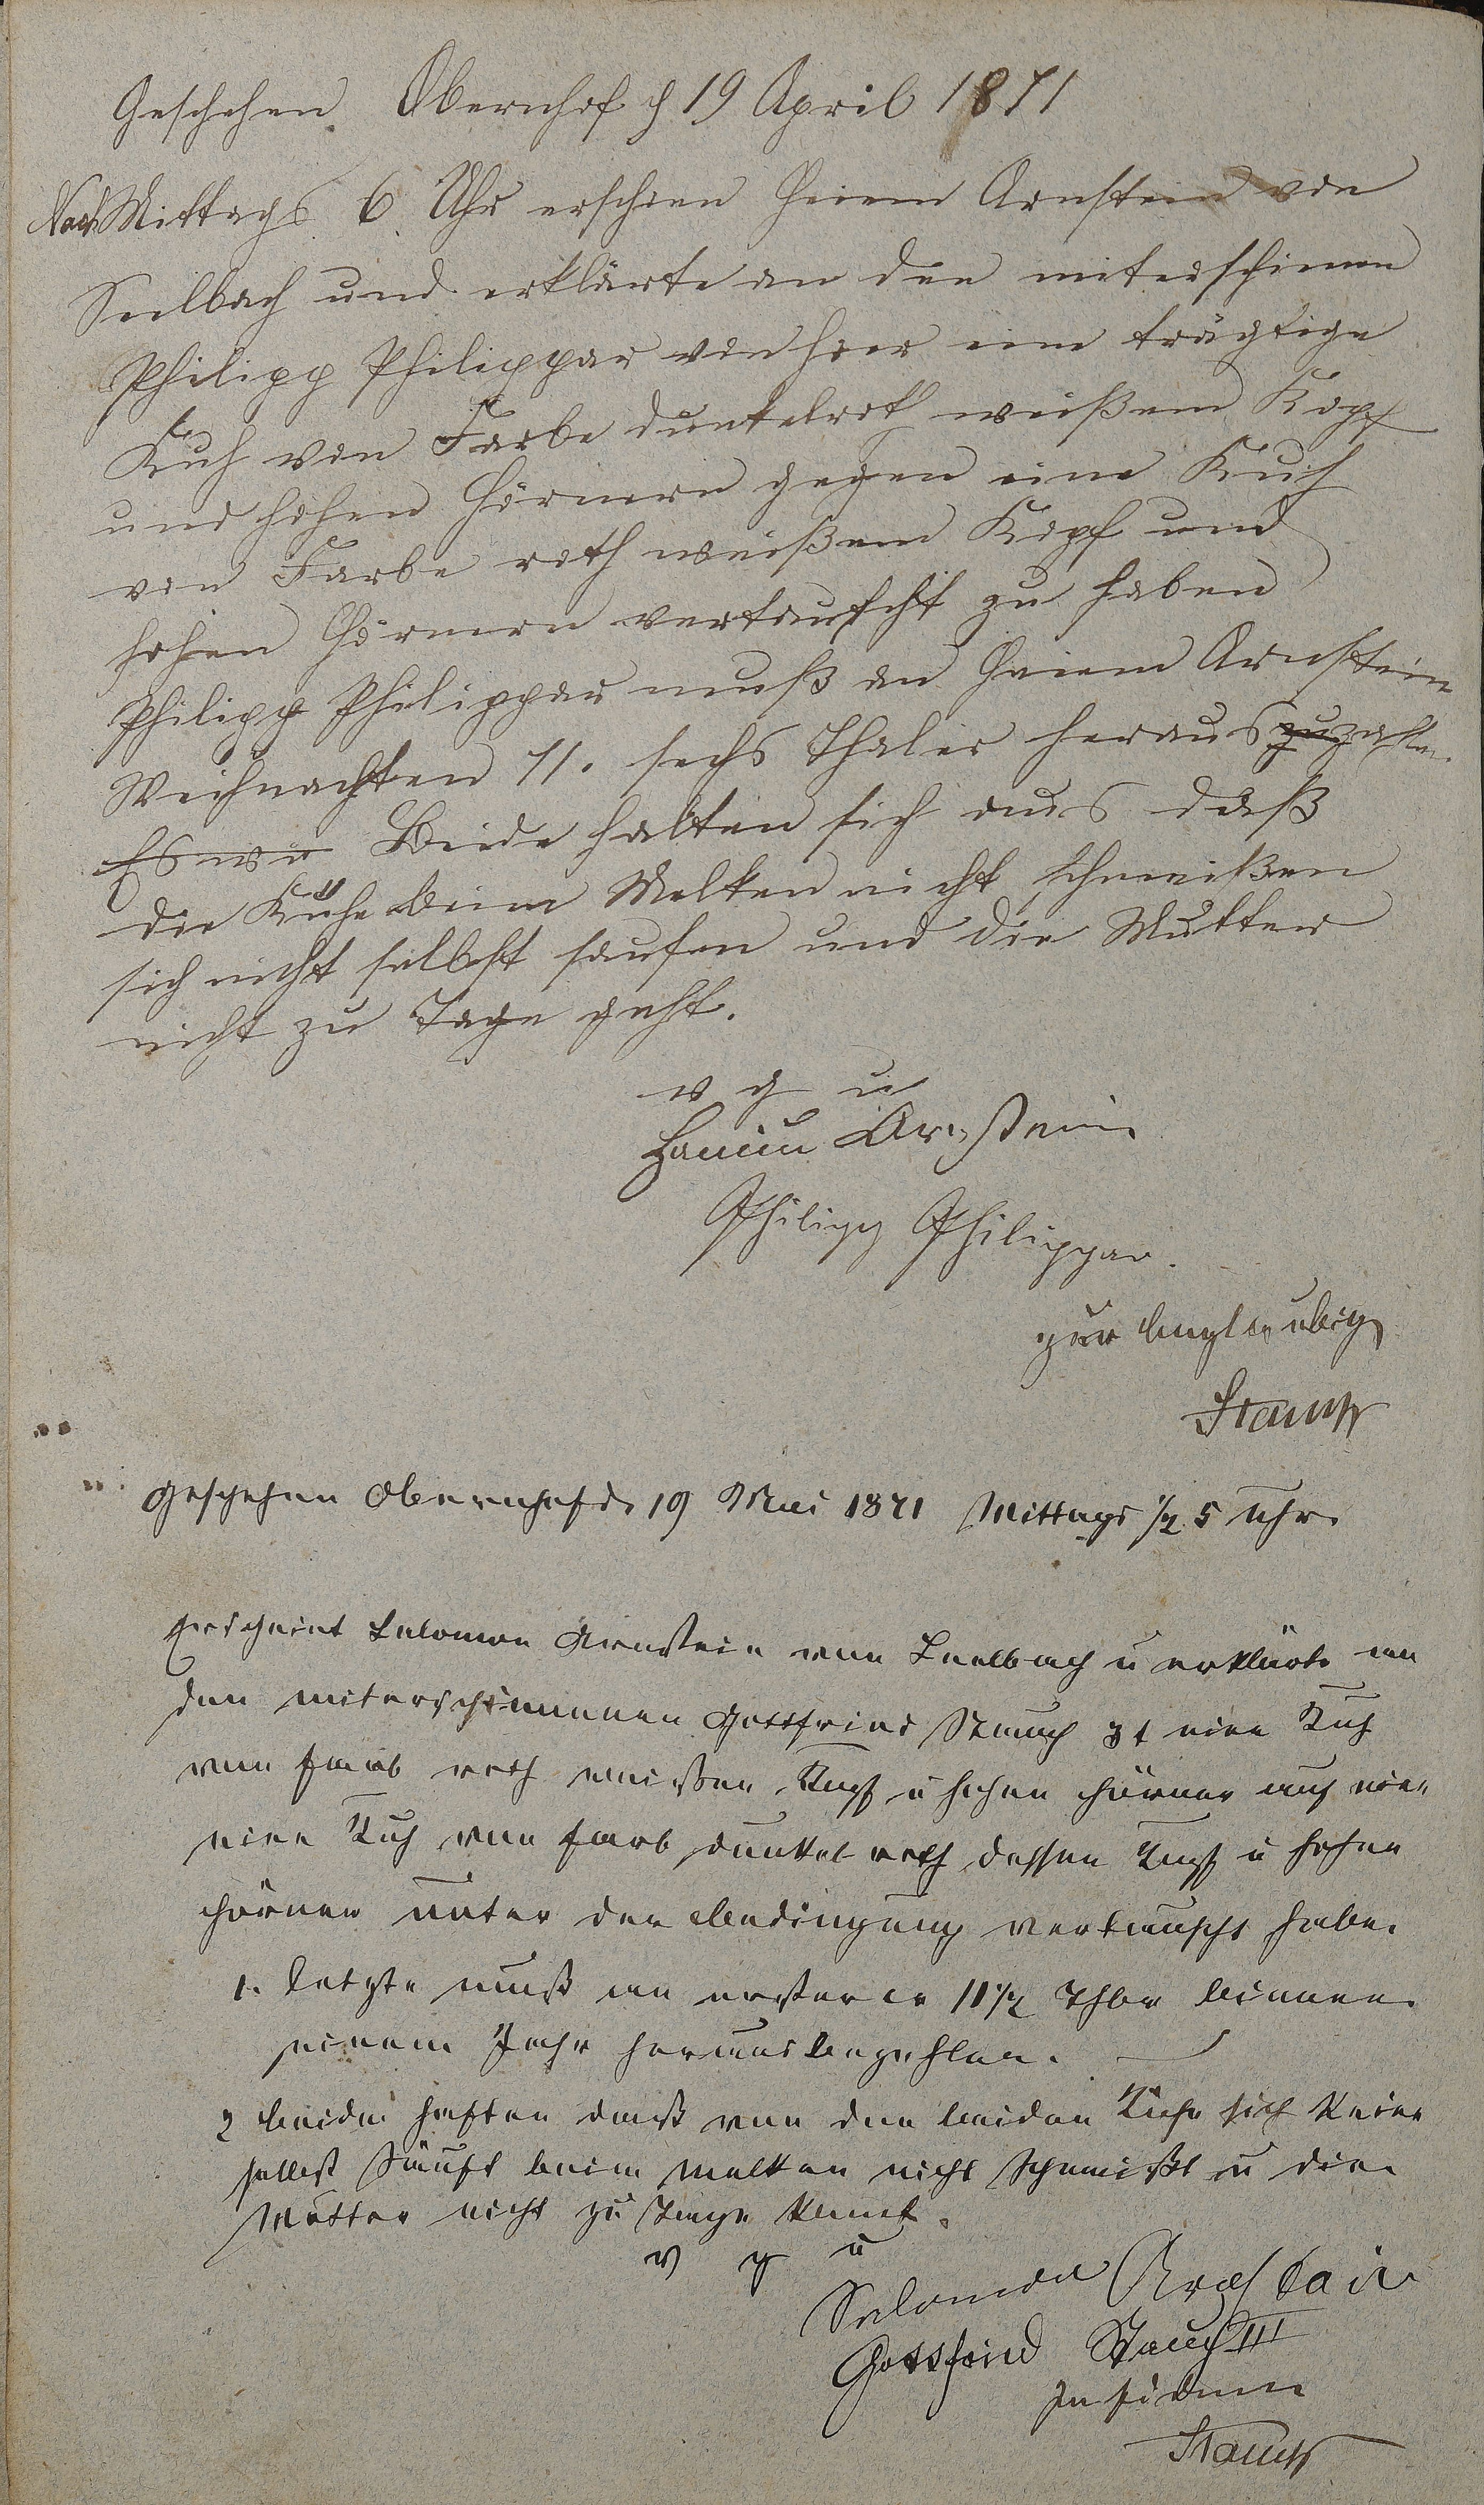 Geschehen Obernhof d 19 April 1871
Nach Mittags 6 Uhr erschien Heium Arnstein von
Seelbach und erklärte an den miterschienen
Philipp Philippar von hier eine trägtige
Kuh von Farbe dunkelroth weißem Kopf
und hohen Hörnern gegen eine Kuh
von Farbe roth weißem Kopf und
hohen Hörnern vertauscht zu haben
Philipp Philippar muß an Heium Arnstein
Weihnachten 71. sechs Thaler heraus zuzahlen
Es wu Beide halten sich aus daß
die Kühe beim Melken nicht schmeißen
sich nicht selbst saufen und die Mutter
nicht zu Tage geht.
v g u
Haium Arnstein
Philipp Philippar.
zur beglaubig
Stauch
Geschehen Obernhof d. 19 Mai 1871 Mittags 1/2 5 Uhr.
Erscheint Salomon Arnstein von Seelbach u erklärte an
den miterschienenen Gottfried Stauch 3t eine Kuh
von farb roth weißen Kopf u hohen Hörner auf eine
eine Kuh von farb dunkel roth dessen Kopf u hohen
Hörner unter der bedingung vertauscht habe.
1. letzte muß an erster er 11 1/2 Thlr binnen
einem Jahr heraus bezahlen.
2 beide haften daß von den beiden Kühe sich keine
selbst Säuft beim melken nicht Schmeißt u die
Mutter nicht zu Tage komt.
v g u
Salomon Arnstein
Gottfried Stauch III
In fidem
Stauch